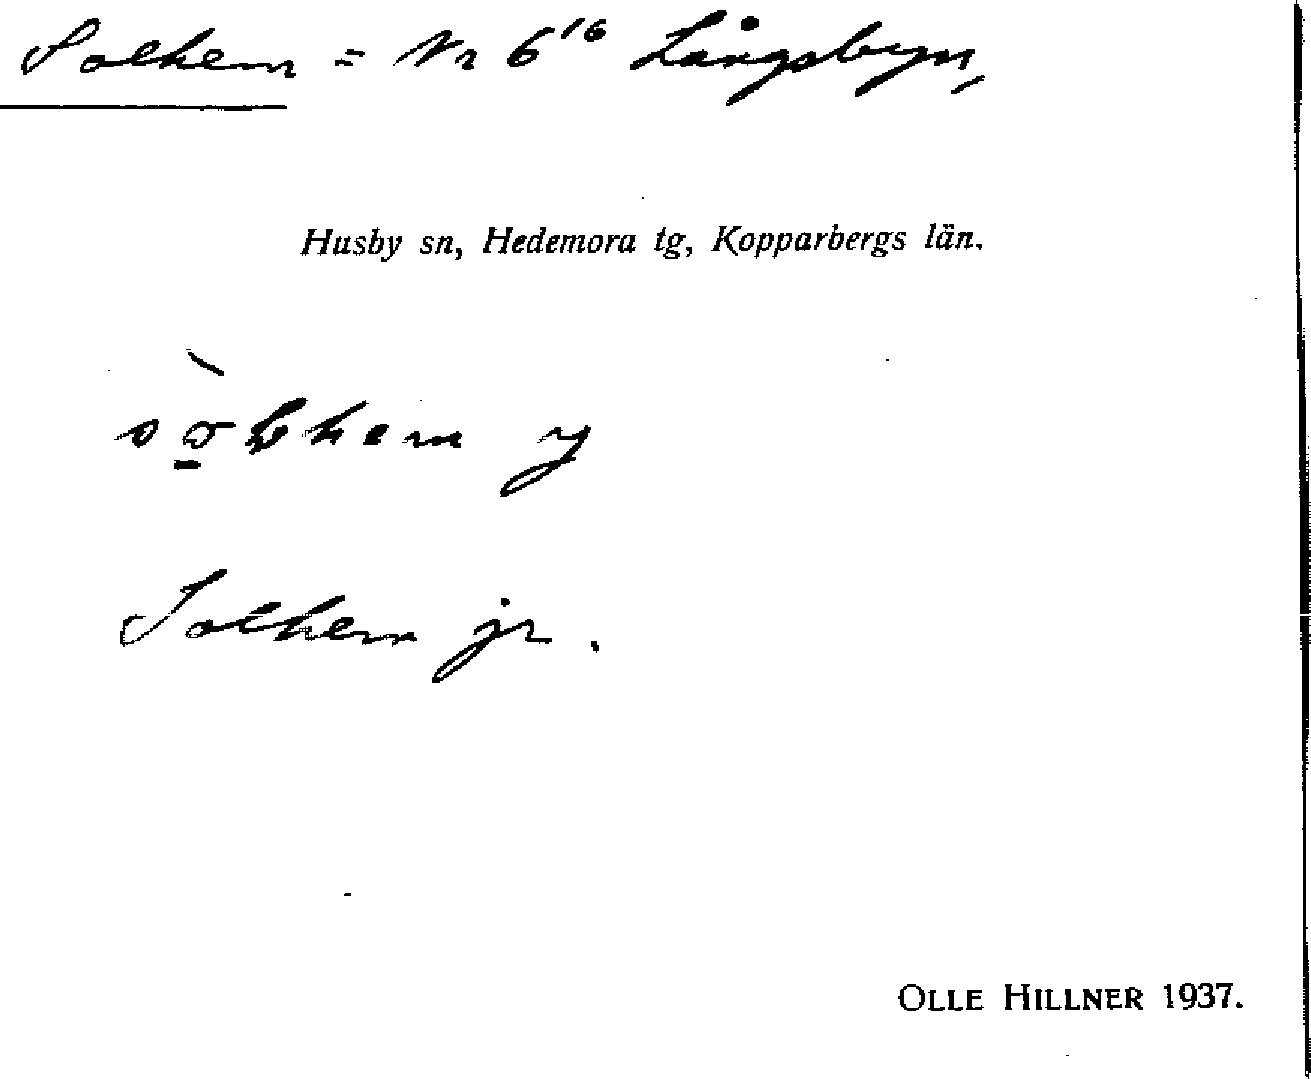 Solhem = Nr 6¹⁶ Långsbyn,
Husby sn, Hedemora tg, Kopparbergs län.
Solhem jr.
OLLE HILLNER 1937.